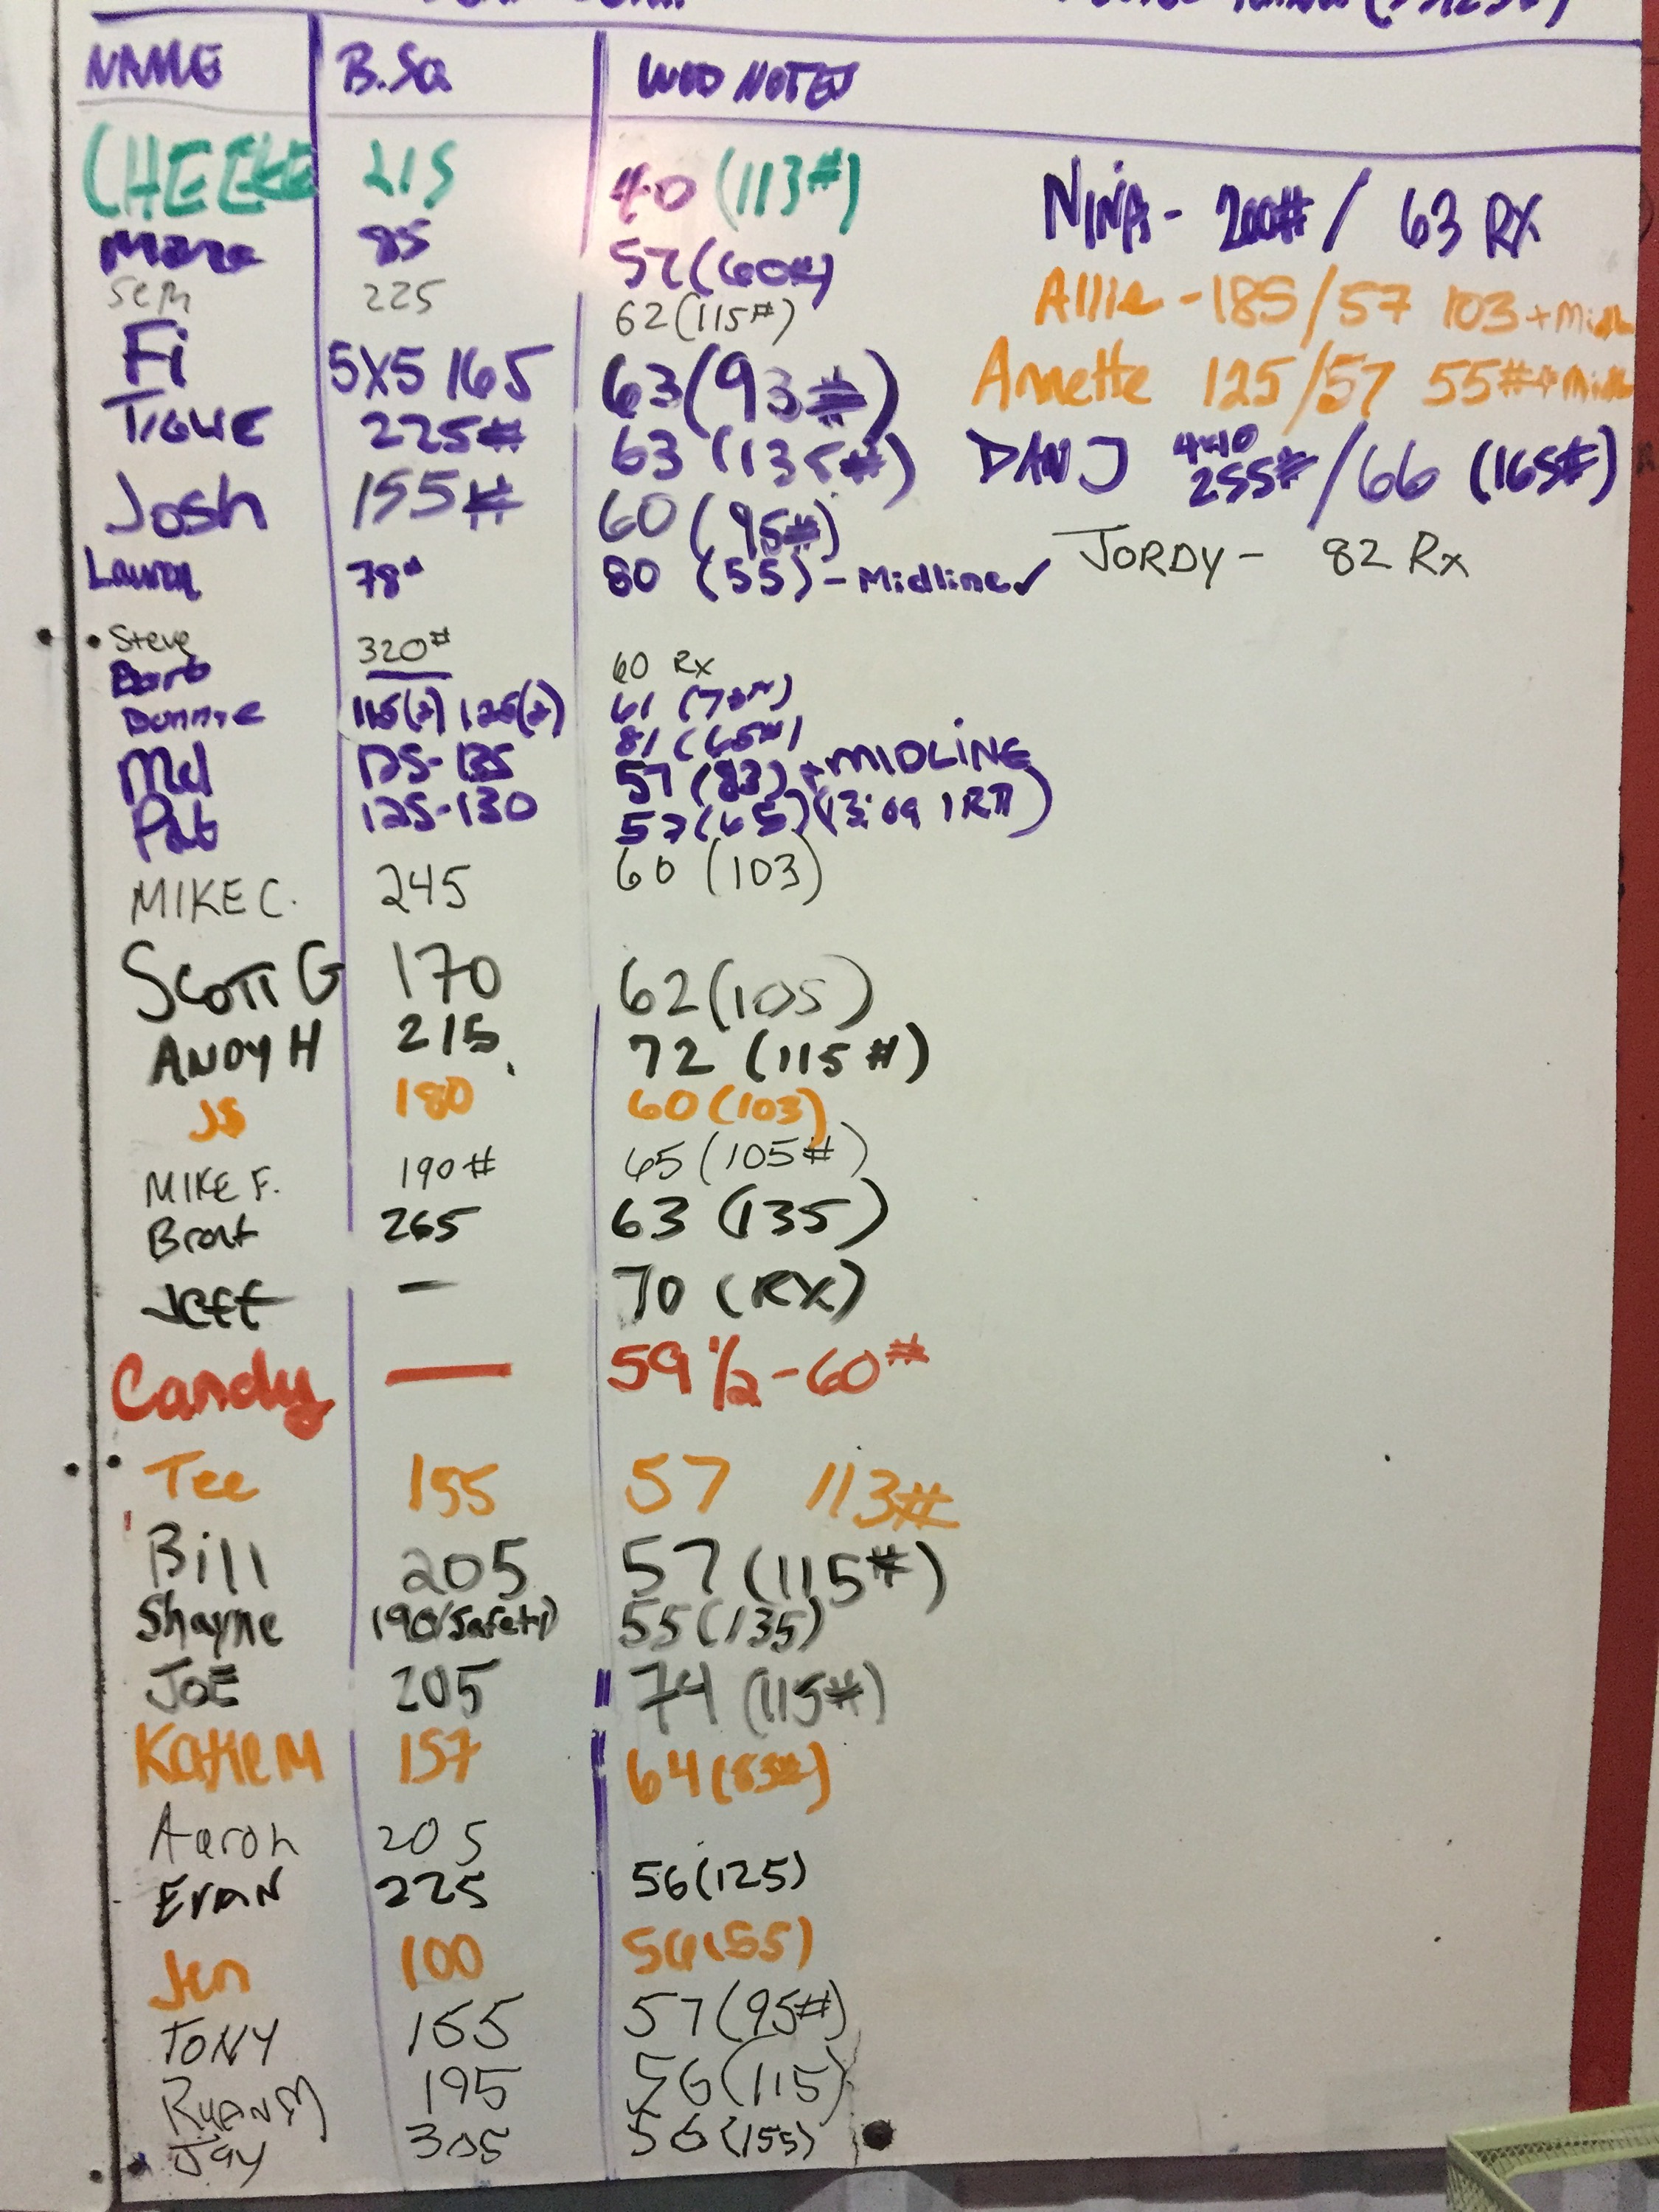 NAME B.SQ WOD NOTES
CHEEKE 215 40 (113#)
85 57 (60#)
225 62 (115#)
Fi 5X5 165 63 (93#)
TIGUE 225# 63 (135#)
Josh 155# 60 (95#)
Lauren 78# 80 (55) - Midline ✓
Steve 320# 60 Rx
Barb 61
Donnie 115(2) 125(2) 81 (65#)
Mel 125-135 57 (83) + MIDLINE
Pat 125-130 57 (65)
MIKE C. 245 60 (103)
SCOTT G 170 62 (105)
ANDY H 215 72 (115#)
JS 180 60 (103)
MIKE F. 190# 65 (105#)
Brent 265 63 (135)
Jeff — 70 (RX)
Candy — 59 1/2 - 60#
Tee 155 57 113#
Bill 205 57 (115#)
Shayne 190 (Safety) 55 (135)
JOE 205 74 (115#)
Katie M 157 64 (83#)
Aaron 205
EVAN 225 56 (125)
Jen 100 56 (55)
TONY 155 57 (95#)
RYAN M 195 56 (115)
Jay 305 56 (155)
NINJA - 200# / 63 RX
Allie - 185/57 103 + Midl
Annette 125/57 55# + Midl
DAN J 255# / 66 (165#)
JORDY - 82 Rx